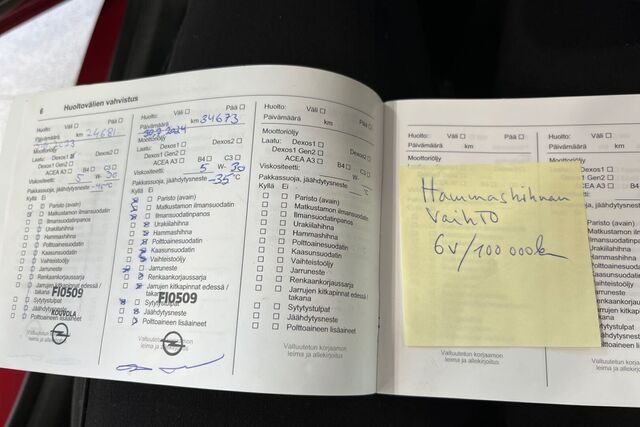 6 Huoltovälien vahvistus
Huolto: Väli ☐ Pää ☐
km 24681
Päivämäärä
Moottoriöljy
Laatu: Dexos1 ☐ Dexos2 ☐
Dexos1 Gen2 ☐
ACEA A3 ☐ B4 ☐ C3 ☐
Viskositeetti: 5 W- 30
Pakkassuoja, jäähdytysneste -40°C
Kyllä Ei
Paristo (avain)
Matkustamon ilmansuodatin
Ilmansuodatinpanos
Urakiilahihna
Hammashihna
Polttoainesuodatin
Kaasunsuodatin
Vaihteistoöljy
Jarruneste
Renkaankorjaussarja
Jarrujen kitkapinnat edessä /
takana
Sytytystulpat
Jäähdytysneste
Polttoaineen lisäaineet
FI0509
KOUVOLA
Huolto: Väli ☐ Pää ☐
km 34673
Päivämäärä
30.9.2024
Moottoriöljy
Laatu: Dexos1 ☐ Dexos2 ☐
Dexos1 Gen2 ☐
ACEA A3 ☐ B4 ☐ C3 ☐
Viskositeetti: 5 W- 30
Pakkassuoja, jäähdytysneste -35°C
Kyllä Ei
Paristo (avain)
Matkustamon ilmansuodatin
Ilmansuodatinpanos
Urakiilahihna
Hammashihna
Polttoainesuodatin
Kaasunsuodatin
Vaihteistoöljy
Jarruneste
Renkaankorjaussarja
Jarrujen kitkapinnat edessä /
takana
FI0509
Sytytystulpat
Jäähdytysneste
Polttoaineen lisäaineet
Huolto: Väli ☐ Pää ☐
Päivämäärä km
Moottoriöljy
Laatu: Dexos1 ☐ Dexos2 ☐
Dexos1 Gen2 ☐
ACEA A3 ☐ B4 ☐ C3 ☐
Viskositeetti: W-
Pakkassuoja, jäähdytysneste °C
Kyllä Ei
Paristo (avain)
Matkustamon ilmansuodatin
Ilmansuodatinpanos
Urakiilahihna
Hammashihna
Polttoainesuodatin
Kaasunsuodatin
Vaihteistoöljy
Jarruneste
Renkaankorjaussarja
Jarrujen kitkapinnat edessä /
takana
Sytytystulpat
Jäähdytysneste
Polttoaineen lisäaineet
Valtuutetun korjaamon
leima ja allekirjoitus
Huolto: Väli ☐ Pää ☐
Päivämäärä km
Moottoriöljy
Hammashihnan
vaihto
6v/100 000k
Valtuutetun korjaamon
leima ja allekirjoitus
Huolto: Väli ☐
Päivämäärä
Moottoriöljy
Laatu: Dexos1